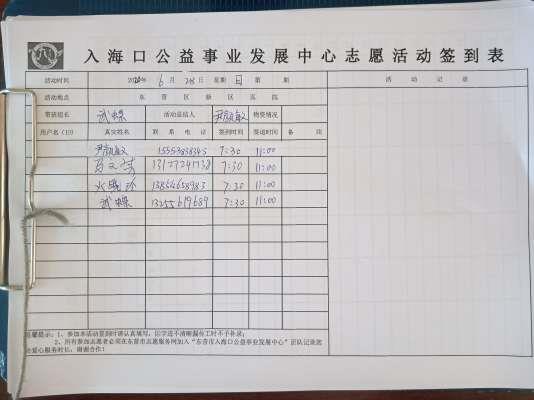 入海口公益事业发展中心志愿活动签到表
活动时间 2020年 6 月 28 星期 日 第 期 活动记录
活动地点 东营区 新区医院
带班组长 武蝶 活动总结人 物资情况
用户名(ID) 真实姓名 联系电话 签到时间 签退时间 备
7:30 11:00
7:30 11:00
7:30 11:00
武蝶 13255619689 7:30 11:00
温馨提示:1、参加本活动签到时请认真填写,因字迹不清晰漏台工时不予补录;
2、所有参加志愿者必须在东营市志愿服务网加入“东营市入海口公益事业发展中心”团队记录您
的爱心服务时长,谢谢合作!